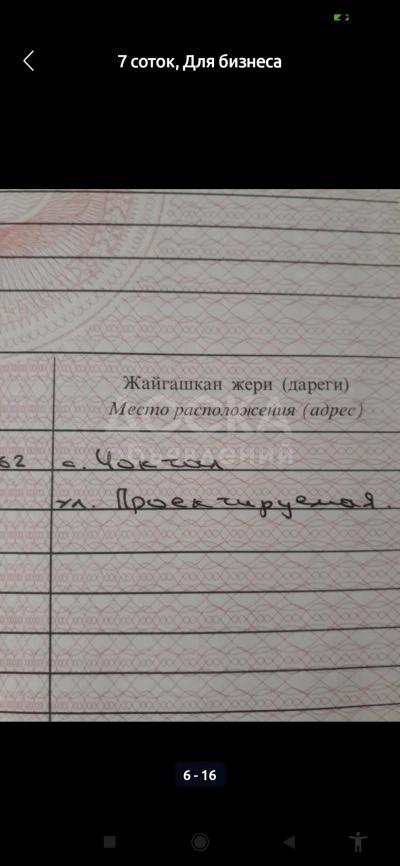 7 соток, Для бизнеса
Жайгашкан жери (дареги)
Место расположения (адрес)
ДОСКА
объявлений
62 с. Чоктал
ул. Проектируемая.
6 - 16